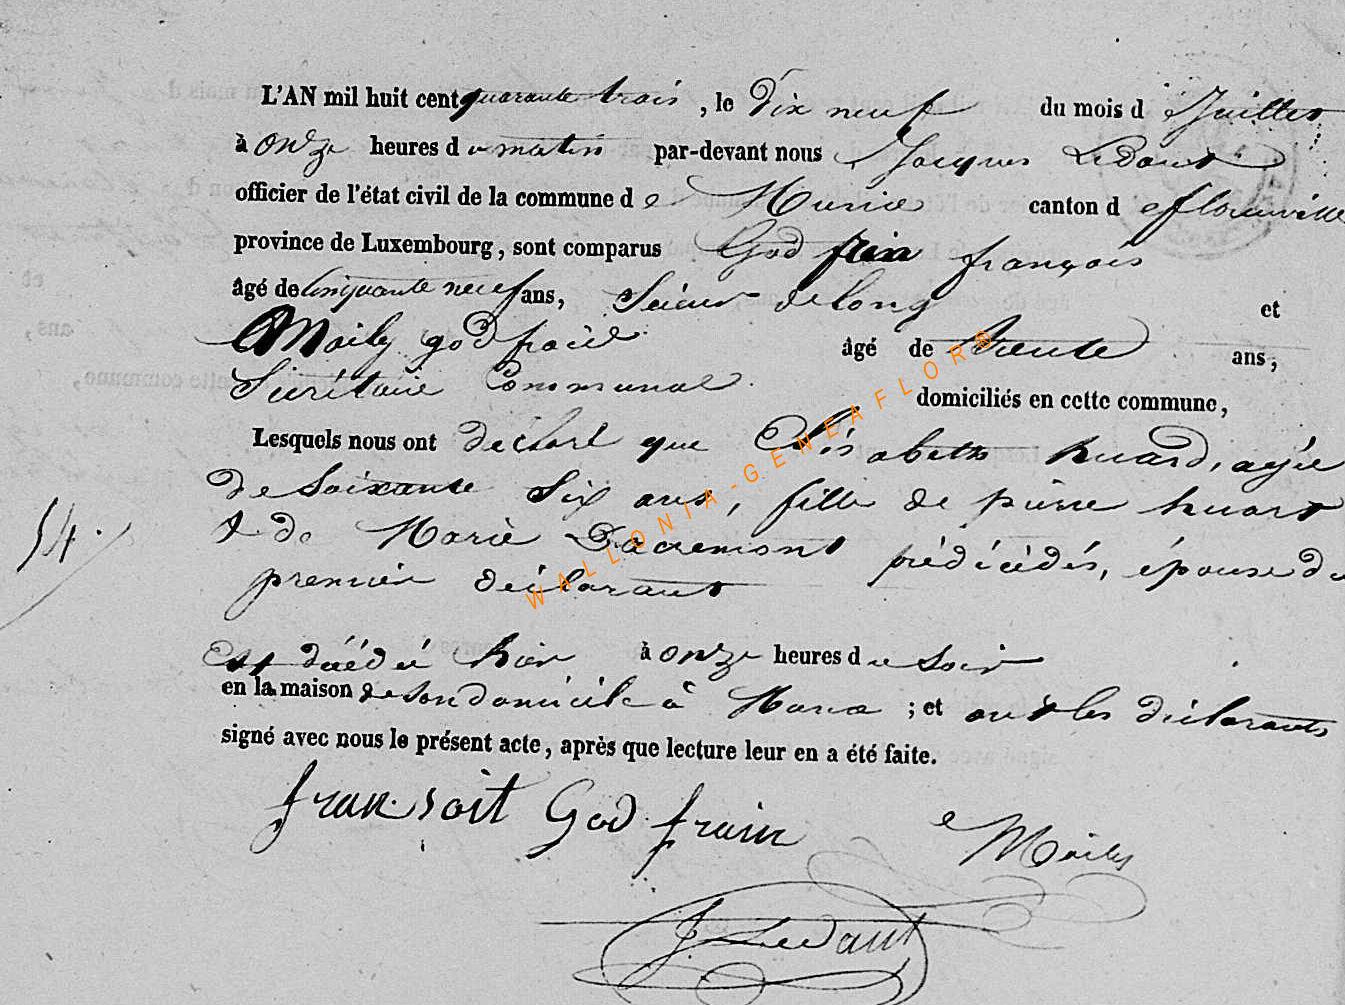 L'AN mil huit cent quarante trois, le Dix neuf du mois de Juillet
à onze heures du matin par-devant nous Jacques Ledant
officier de l'état civil de la commune de canton de florenville
province de Luxembourg, sont comparus God frin françois
âgé de Cinquante neuf ans, Scieur de long et
Maily godfroid âgé de Trente ans,
Sécrétaire Communal domiciliés en cette commune,
Lesquels nous ont déclaré que Elisabeth huard, agée
de Soixante Six ans, fille de pierre huart
& de Marie Dacremont prédécédés, épouse du
54.
premier déclarant
Est décédée hier à onze heures du Soir
en la maison de son domicile à ; et ont les déclarants
signé avec nous le présent acte, après que lecture leur en a été faite.
fransoit God frain Maily
J Ledant
WALLONIA-GENEAFLOR®